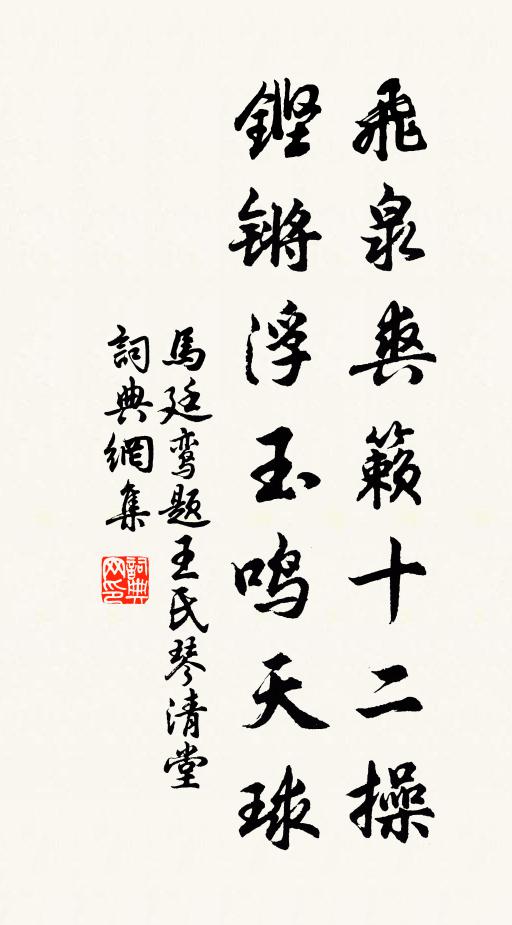 飛泉爽籟十二操
鏗锵浮玉鸣天球
馬廷鸾題王氏琴清堂
詞典網集
詞典网印